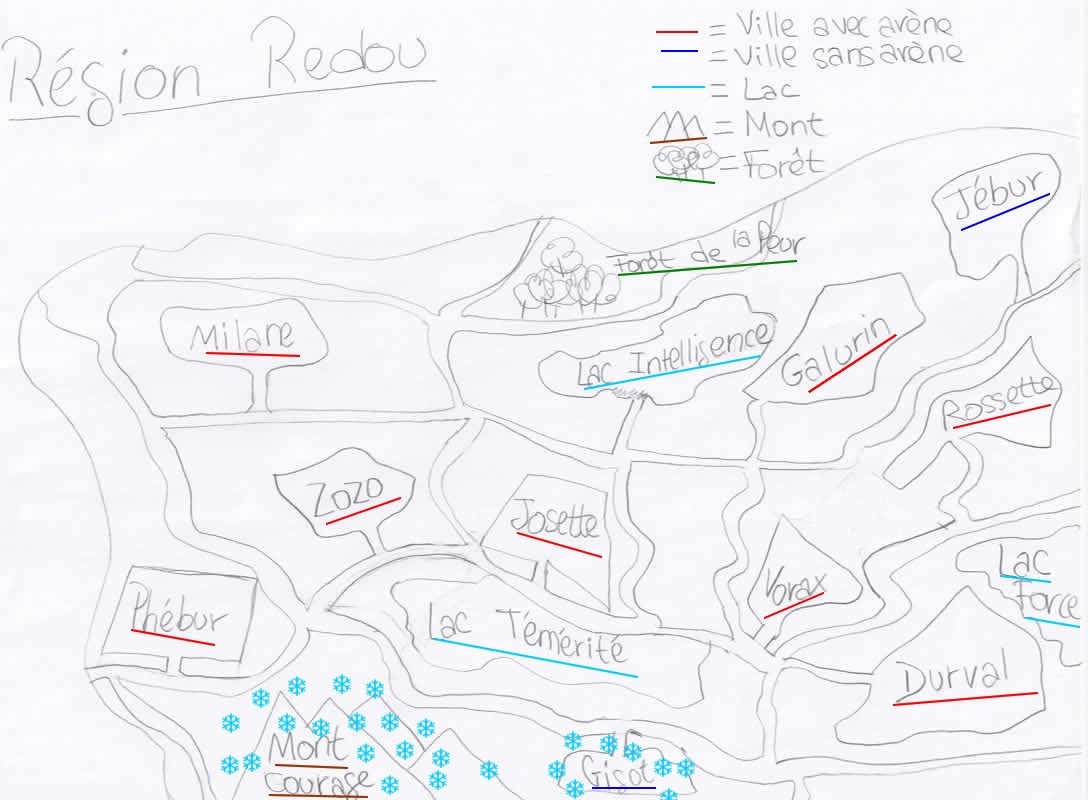 Région Redou
= Ville avec arène
= Ville sans arène
= Lac
= Mont
= Forêt
Jébur
Forêt de la Peur
Milane
Lac Intelligence
Galurin
Rossette
Zozo
Josette
Lac
Force
Vorax
Phébur
Lac Témérité
Durval
Mont
Courage
Gisot